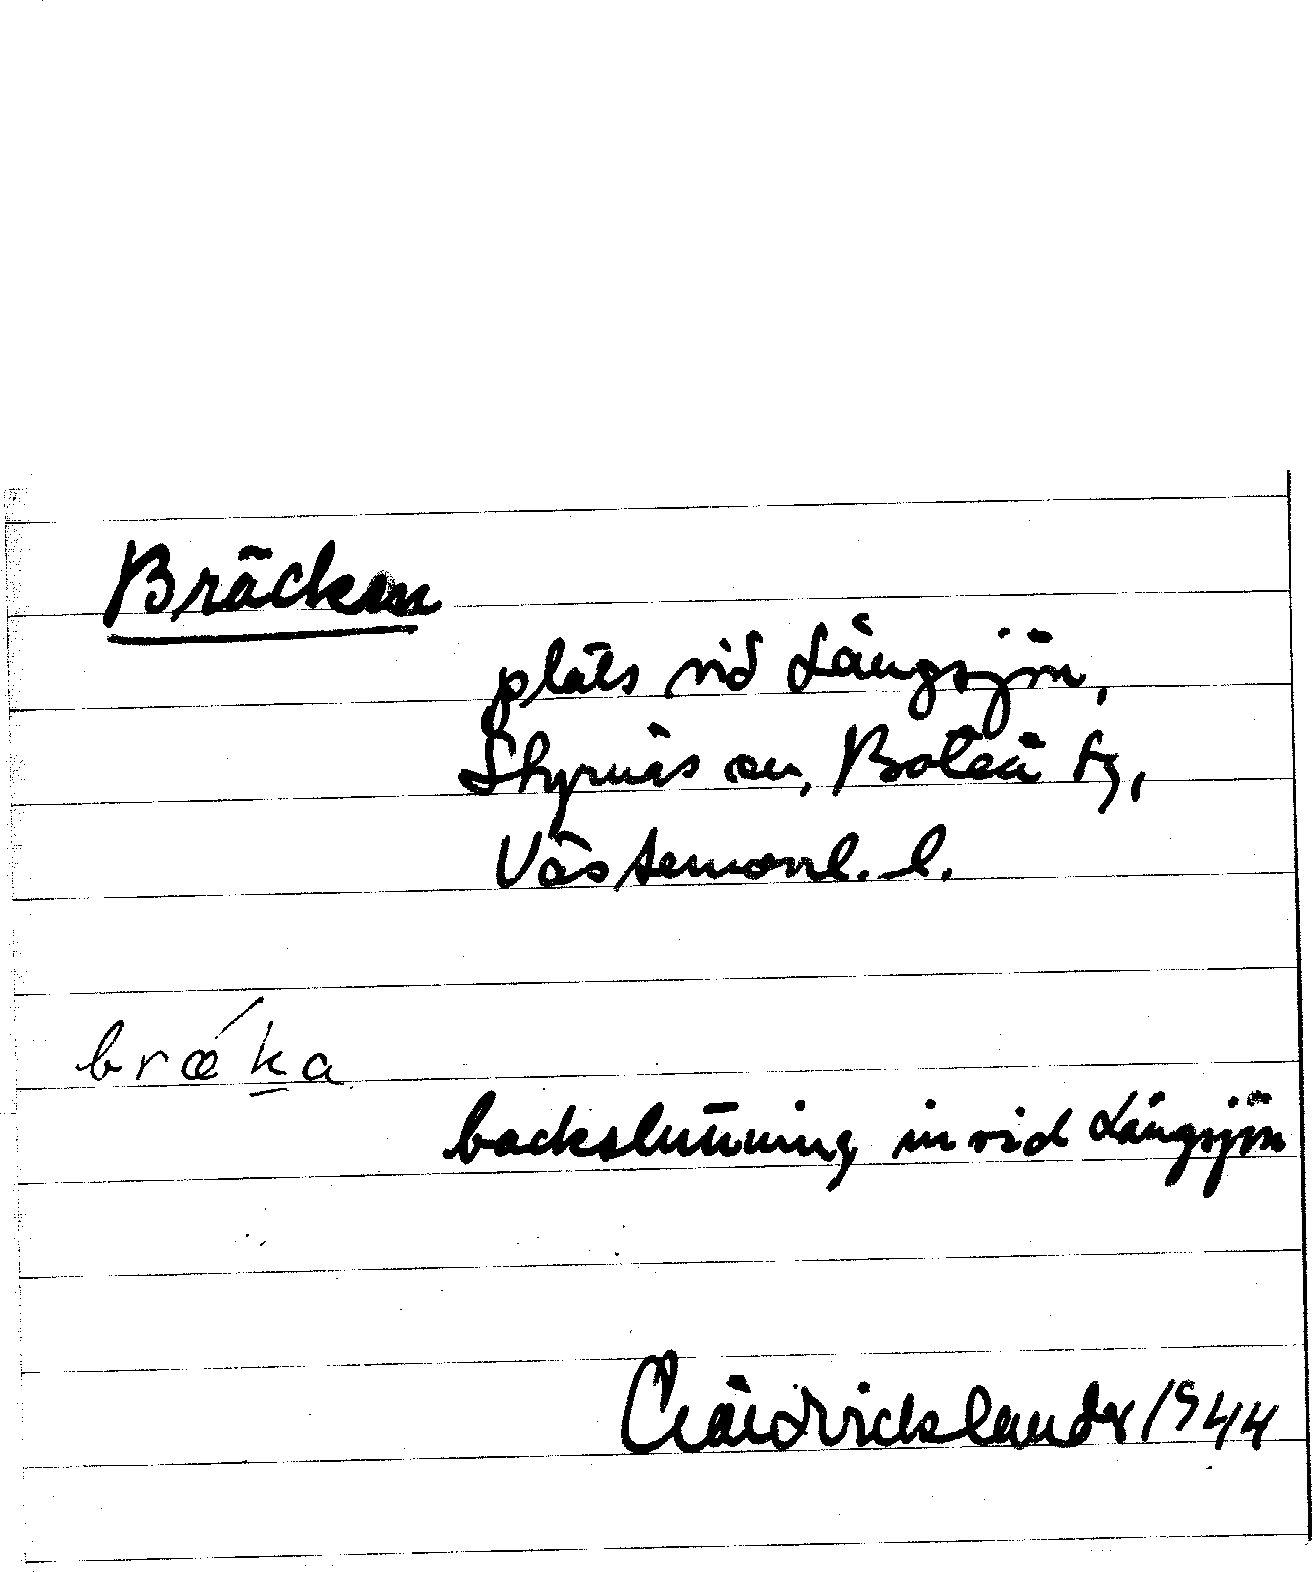 Bräcken
plats vid Långsjön,
Styrnäs sn, Boteå tg,
Västernorrl. l.
bræ´ka
backsluttning in vid Långsjön
1944